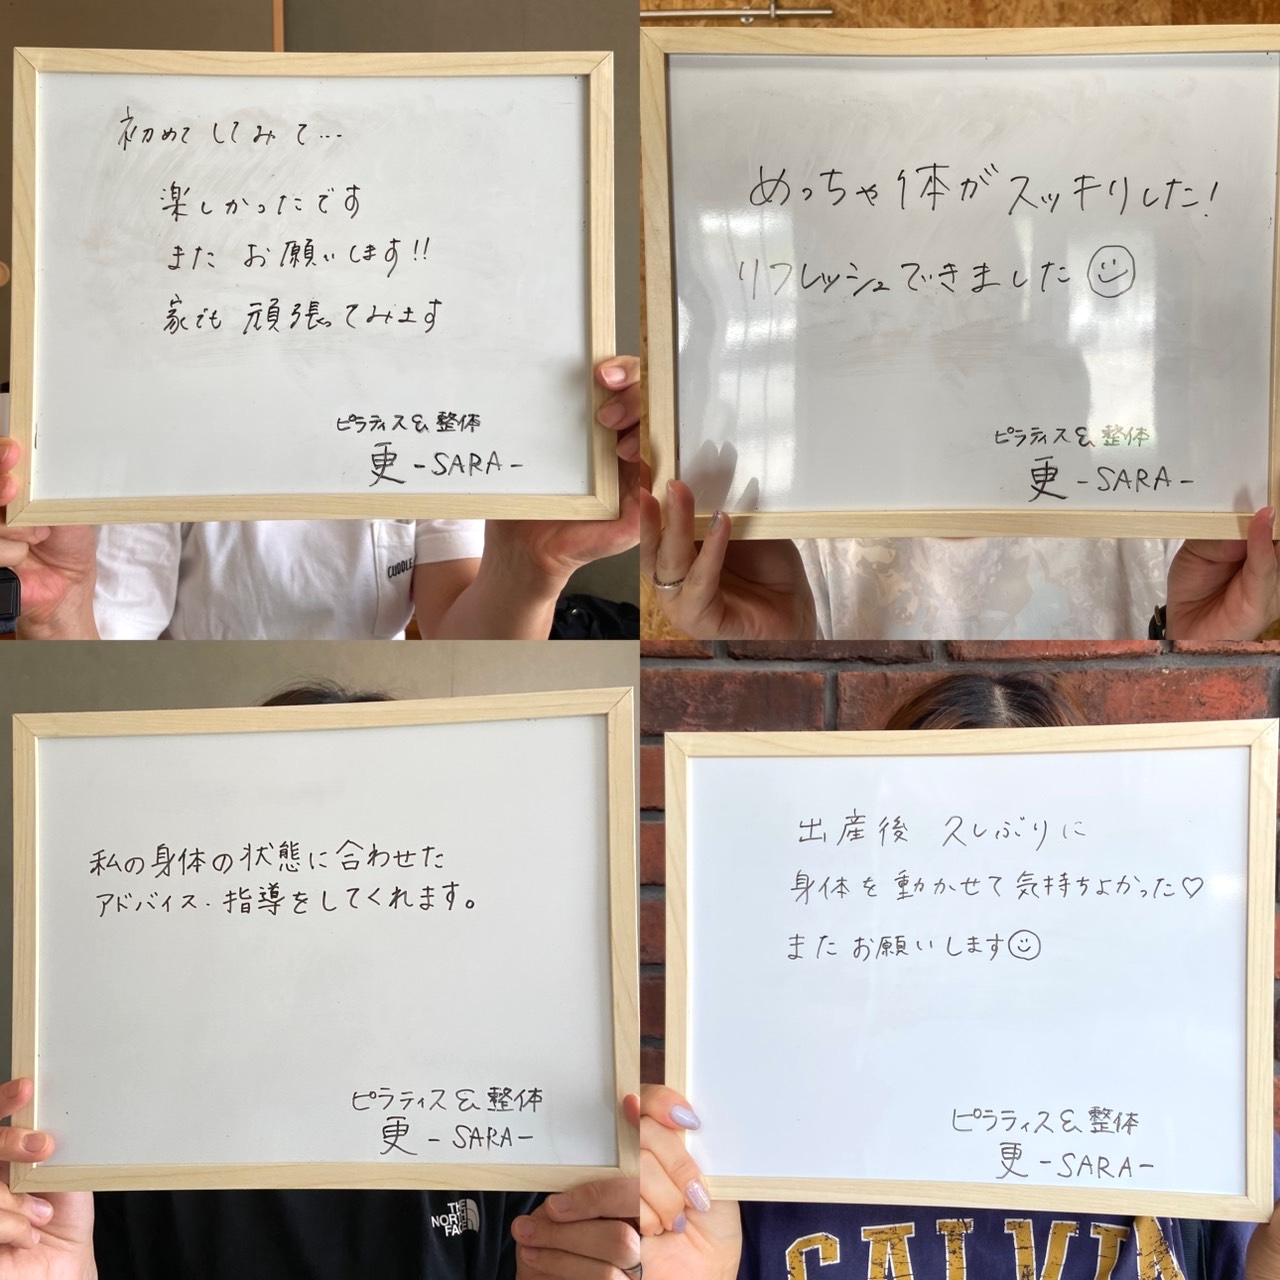 初めてしてみて...
楽しかったです
またお願いします!!
家でも頑張ってみます
ピラティス&整体
更 -SARA-
CUDDLE
めっちゃ体がスッキリした!
リフレッシュできました
ピラティス&整体
更 -SARA-
私の身体の状態に合わせた
アドバイス・指導をしてくれます。
ピラティス&整体
更 -SARA-
THE
NORTH
FACE
出産後 久しぶりに
身体を動かせて気持ちよかった♡
またお願いします
ピラティス&整体
更 -SARA-
CALVIN